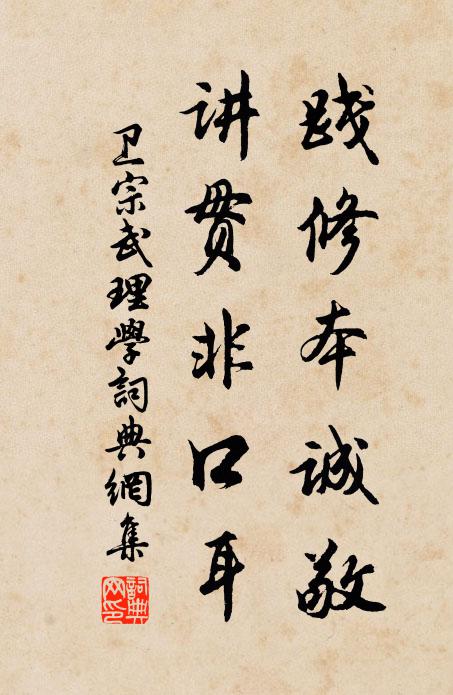 践修本诚敬
讲贯非口耳
卫宗武理學詞典網集
詞典網印